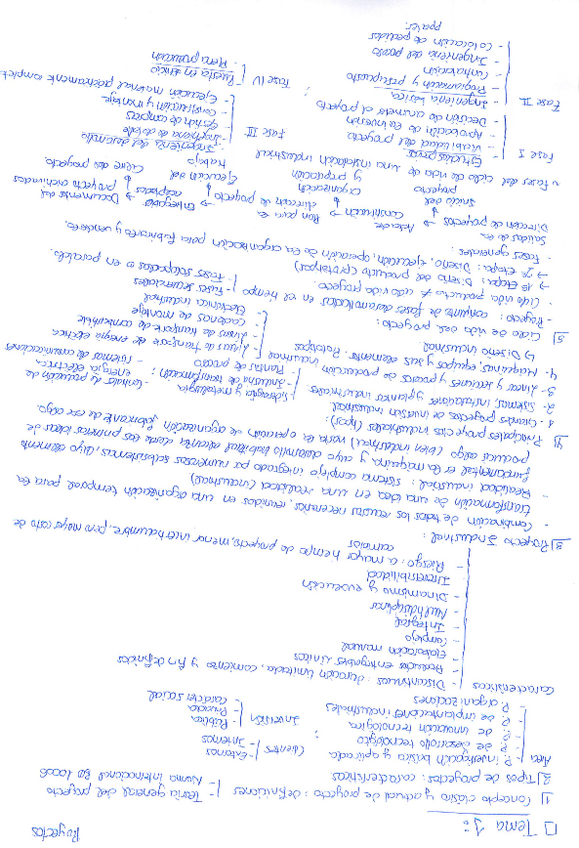 Proyectos
□ Tema 1:
1) Concepto clásico y actual de proyecto: definiciones - Teoría general del proyecto
- Norma internacional ISO 10006
2) Tipos de proyectos: características
Área - P. investigación básica y aplicada
- P. de desarrollo tecnológico
- P. de innovación tecnológica
- P. de implantaciones industriales
- P. organizaciones
Clientes - Externos
- Internos
Inversión - Pública
- Privada
- Carácter social
Características - Discontinuos: duración limitada, comienzo y fin definidos
- Resultados entregables únicos
- Elaboración manual
- Complejo
- Integral
- Multidisciplinar
- Dinamismo y evolución
- Irreversibilidad
- Riesgo: a mayor tiempo de proyecto, menor incertidumbre, pero mayor costo de
cambios
3) Proyecto Industrial:
- Combinación de todos los recursos necesarios, reunidos en una organización temporal para la
transformación de una idea en una realidad (industrial)
- Realidad industrial: sistema complejo integrado por numerosos subsistemas cuyo elemento
fundamental es la máquina, y cuyo desarrollo habitual estaría desde las primeras ideas de
producir algo (bien industrial) hasta la operación de organización fabricante de ese algo.
4) Principales proyectos industriales (tipos):
1. Grandes proyectos de inversión industrial
2. Sistemas, instalaciones y plantas industriales
- Siderurgia y metalurgia
- Industria de transformación
- Plantas de proceso
- Centrales de producción de
energía eléctrica
- Sistemas de comunicaciones
3. Líneas y sectores y procesos de producción industrial
- Líneas de transporte de energía eléctrica
- Líneas de transporte de combustible
- Cadenas de montaje
- Electrónica industrial
4. Máquinas, equipos y sus elementos. Prototipos.
5) Diseño industrial
5) Ciclo de vida del proyecto:
- Proyecto: conjunto de fases desarrolladas en el tiempo - Fases secuenciales
- Fases solapadas o en paralelo.
- Ciclo vida producto ≠ ciclo vida proyecto.
→ 1ª Etapa: Diseño del producto (prototipos)
→ 2ª Etapa: Diseño, ejecución, operación de la organización para fabricarlo y venderlo.
- Fases generales:
Dirección de proyectos → Acta de Constitución → Plan para la dirección de proyecto → Entregables aceptados → Documentos del proyecto archivados
Inicio del
proyecto
Organización
y preparación
Ejecución del
trabajo
Cierre del proyecto
- Fases del ciclo de vida de una instalación industrial
Fase I - Estudios previos
- Viabilidad del proyecto
- Aprobación de la inversión
- Decisión de acometer el proyecto
Fase II - Ingeniería básica
- Programación y presupuesto
- Contratación
- Ingeniería del proceso
- Colocación de pedidos
ppales.
Fase III - Ingeniería del desarrollo
- Ingeniería de detalle
- Gestión de compras
- Construcción y montaje
- Ejecución material prácticamente completa
Fase IV - Puesta en servicio
- Plena producción